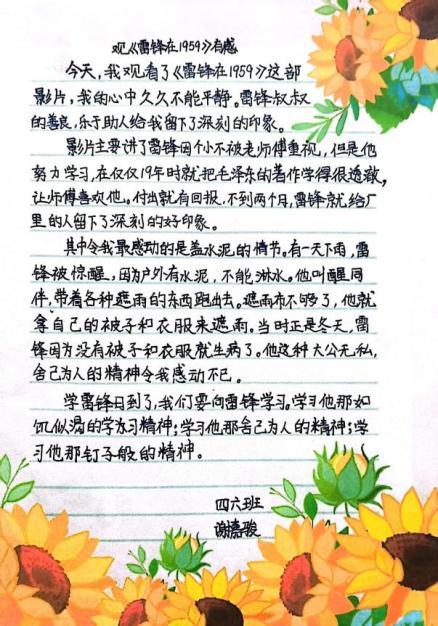 观《雷锋在1959》有感
今天，我观看了《雷锋在1959》这部
影片，我的心中久久不能平静。雷锋叔叔
的善良，乐于助人给我留下了深刻的印象。
影片主要讲了雷锋因个小不被老师傅重视，但是他
努力学习，在仅仅19年时就把毛泽东的著作学得很透彻，
让师傅喜欢他。付出就有回报，不到两个月，雷锋就给厂
里的人留下了深刻的好印象。
其中令我最感动的是盖水泥的情节。有一天下雨，雷
锋被惊醒，因为户外有水泥，不能淋水。他叫醒同
伴，带着各种遮雨的东西跑出去。遮雨布不够了，他就
拿自己的被子和衣服来遮雨。当时正是冬天，雷
锋因为没有被子和衣服就生病了。他这种大公无私，
舍己为人的精神令我感动不已。
学雷锋日到了，我们要向雷锋学习。学习他那如
饥似渴的学习精神；学习他那舍己为人的精神；学
习他那钉子般的精神。
四六班
谢嘉骏